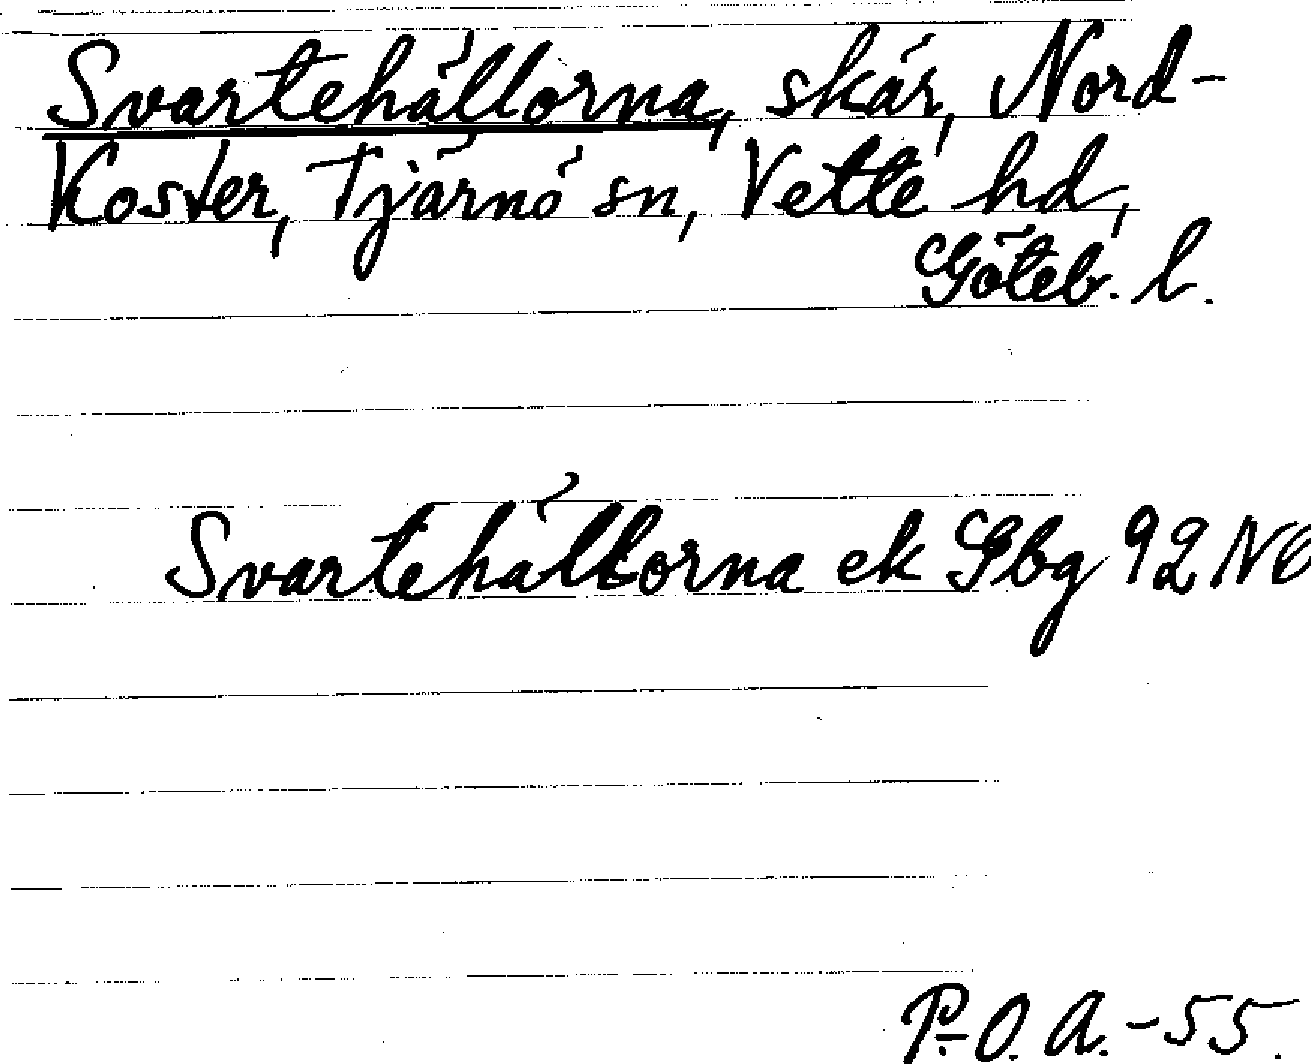 Svartehällorna, skär, Nord-
Koster, Tjärnö sn, Vette hd,
Göteb. l.
Svartehällorna ek Gbg 92 NO
P.-O. A. -55.